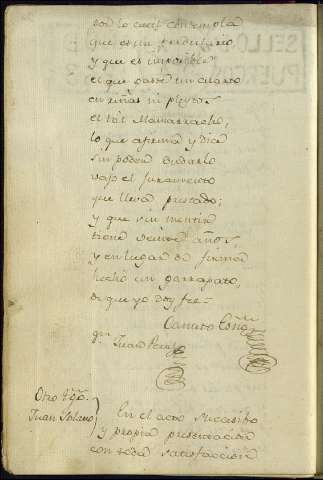 por lo cual contempla
que es un perdulario,
y que es imposible
el que pase un cuarto
en riñas ni pleytos
el tal Mamarracho,
lo que afirma y dice
sin poder dudarlo
vajo el juramento
que lleva prestado;
y que sin mentir
tiene veinte años,
y en lugar de firma
hecho un garrapato,
de que yo doy fee=
Canuto
Juan Perez
Otro tgo.
Juan Solano
En el acto sucesibo
y propia presentacion
con toda satisfaccion